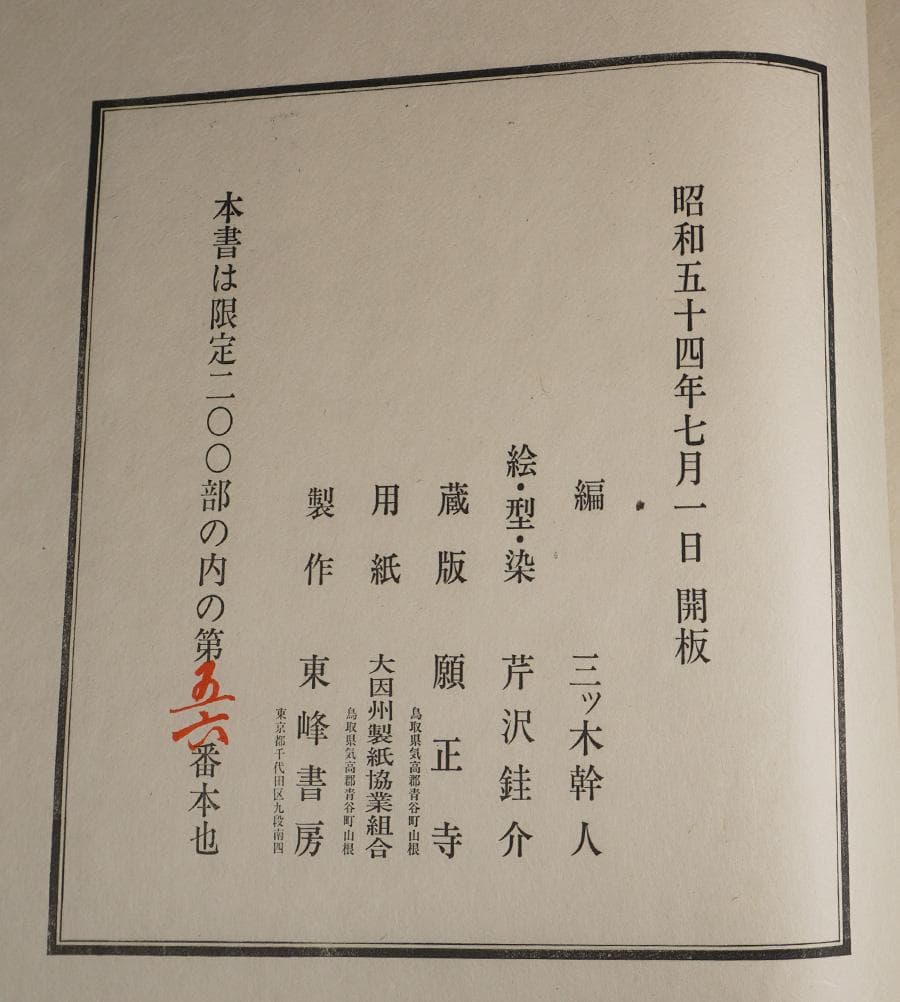 昭和五十四年七月一日 開板
編 三ッ木幹人
絵・型・染 芹沢銈介
蔵版 願正寺
鳥取県気高郡青谷町山根
用紙 大因州製紙協業組合
鳥取県気高郡青谷町山根
製作 東峰書房
東京都千代田区九段南四
本書は限定二〇〇部の内の第五六番本也